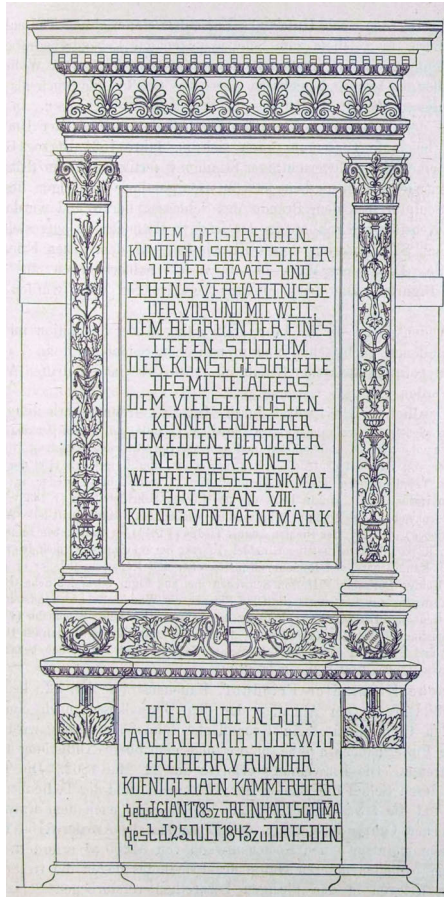 DEM GEISTREICHEN
KUNDIGEN SCHRIFTSTELLER
UEBER STAATS UND
LEBENS VERHAELTNISSE
DER VOR UND MIT WELT,
DEM BEGRUENDER EINES
TIEFEN STUDIUM
DER KUNSTGESHIHTE
DES MITTELALTERS
DEM VIELSEITIGSTEN
KENNER FRUEHERER
DEM EDLEN FOERDERER
NEUERER KUNST
WEIHETE DIESES DENKMAL
CHRISTIAN VIII.
KOENIG VON DAENEMARK.
HIER RUHT IN GOTT
CARL FRIEDRICH LUDEWIG
FREIHERR V RUMOHR
KOENIGL. DAEN. KAMMERHERR
geb. d. 6 IAN 1785 zu REINHARTSGRIMA
gest. d. 25 IULI 1843 zu DRESDEN